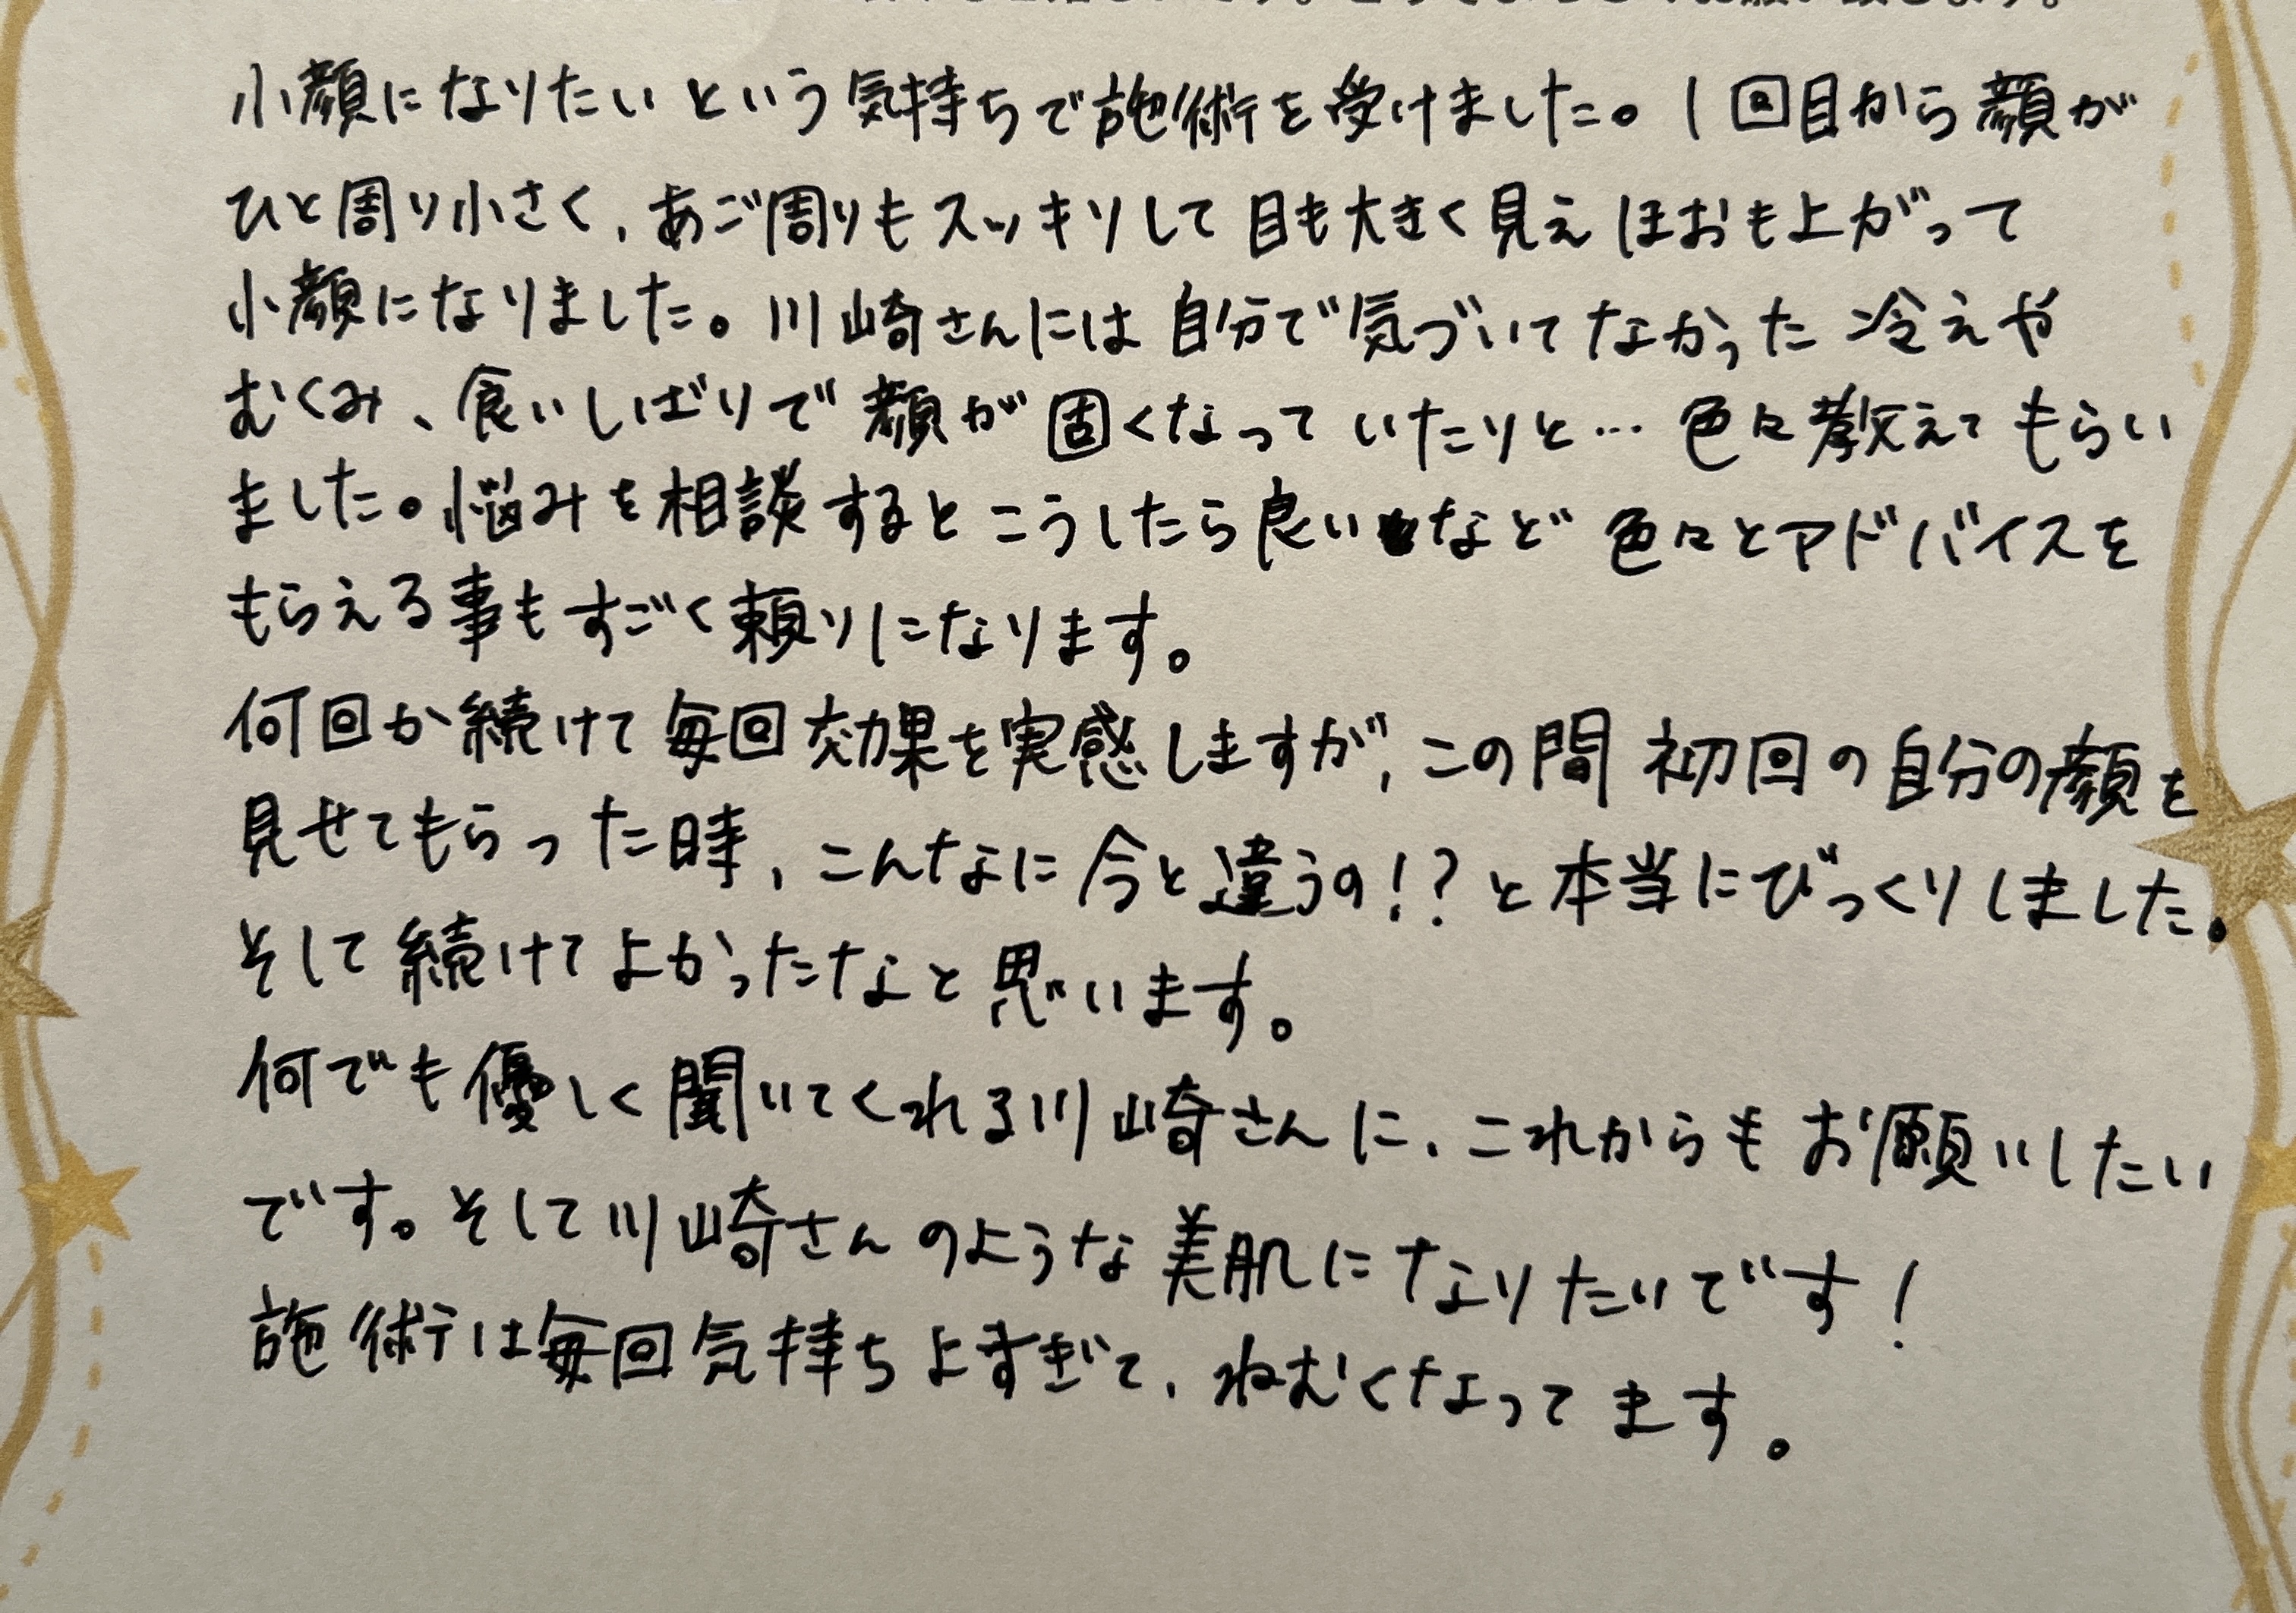 小顔になりたいという気持ちで施術を受けました。1回目から顔が
ひと周り小さく、あご周りもスッキリして目も大きく見えほおも上がって
小顔になりました。川崎さんには自分で気づいてなかった冷えや
むくみ、食いしばりで顔が固くなっていたりと…色々教えてもらい
ました。悩みを相談するとこうしたら良いなど色々とアドバイスを
もらえる事もすごく頼りになります。
何回か続けて毎回効果を実感しますが、この間初回の自分の顔を
見せてもらった時、こんなに今と違うの!?と本当にびっくりしました。
そして続けてよかったなと思います。
何でも優しく聞いてくれる川崎さんに、これからもお願いしたい
です。そして川崎さんのような美肌になりたいです!
施術は毎回気持ちよすぎて、ねむくなってます。